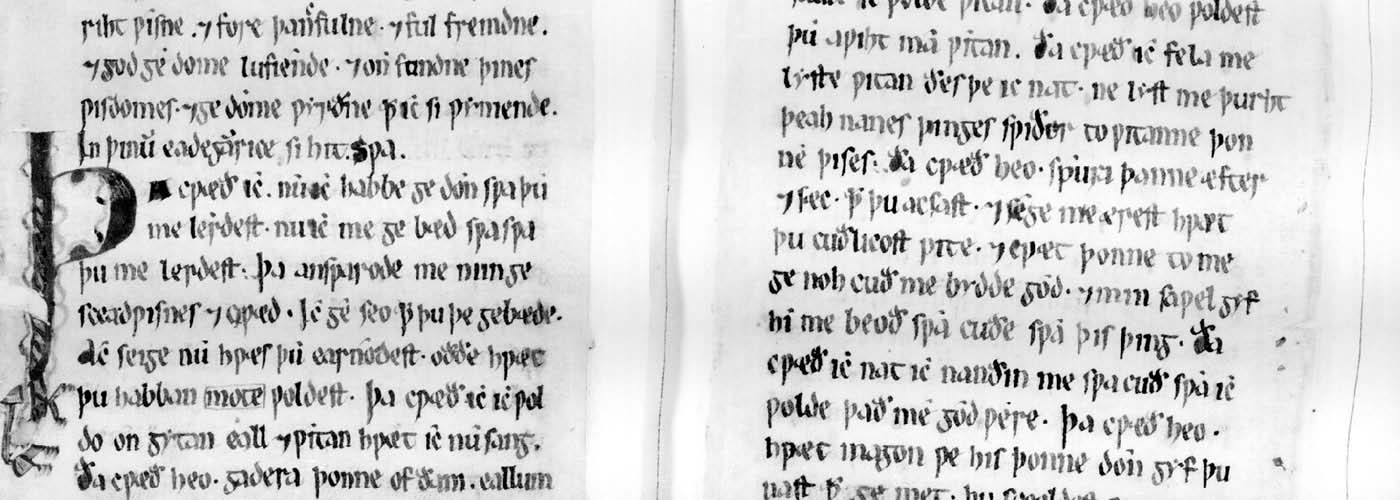 riht ƿisne . ⁊ fore þancfulne . ⁊ ful fremdne .
⁊ god gedome lufiende . ⁊ onfundne þines
ƿisdomes . ⁊ gedome ƿyrðne ꝥ ic si ƿiniende .
In þinū eadegan rice . si hit sƿa .
Þa cƿæð ic . nu ic habbe gedon sƿa þu
me lerdest . nu ic me gebæd sƿa sƿa
þu me lerdest . þa ansƿarode me min ge
sceadƿisnes ⁊ cƿæð . Ic geseo ꝥ þu þe gebæde .
ac seige nu hƿæs þu earnodest . oððe hƿæt
þu habban mote ƿoldest . þa cƿæð ic ic ƿol
do ongytan eall ⁊ ƿitan hƿæt ic nu sang .
Ða cƿæð heo . gadera þonne of ðam . eallum
ic ƿolde ƿitan . Ða cƿæð heo ƿoldest
þu aƿiht ma ƿitan . Ða cƿæð ic fela me
lyste ƿitan ðes þe ic nat . ne lyst me þurht
þeah nanes þinges sƿiðor to ƿitanne þon
ne þises . Ða cƿæð heo . spura þanne æfter
⁊ sec . ꝥ þu acsast . ⁊ sege me ærest hƿæt
þu cuðlicost ƿite . ⁊ cƿæt þonne to me
genoh cuð me byð god . ⁊ min saƿel gyf
hi me beoð sƿa cuðe sƿa þis þing . Ða
cƿæð ic nat ic nanðin me sƿa cuð sƿa ic
ƿolde það me god ƿere . þa cƿæð heo .
hƿæt magon ƿe his þonne don gyf þu
nast ꝥ gemet .